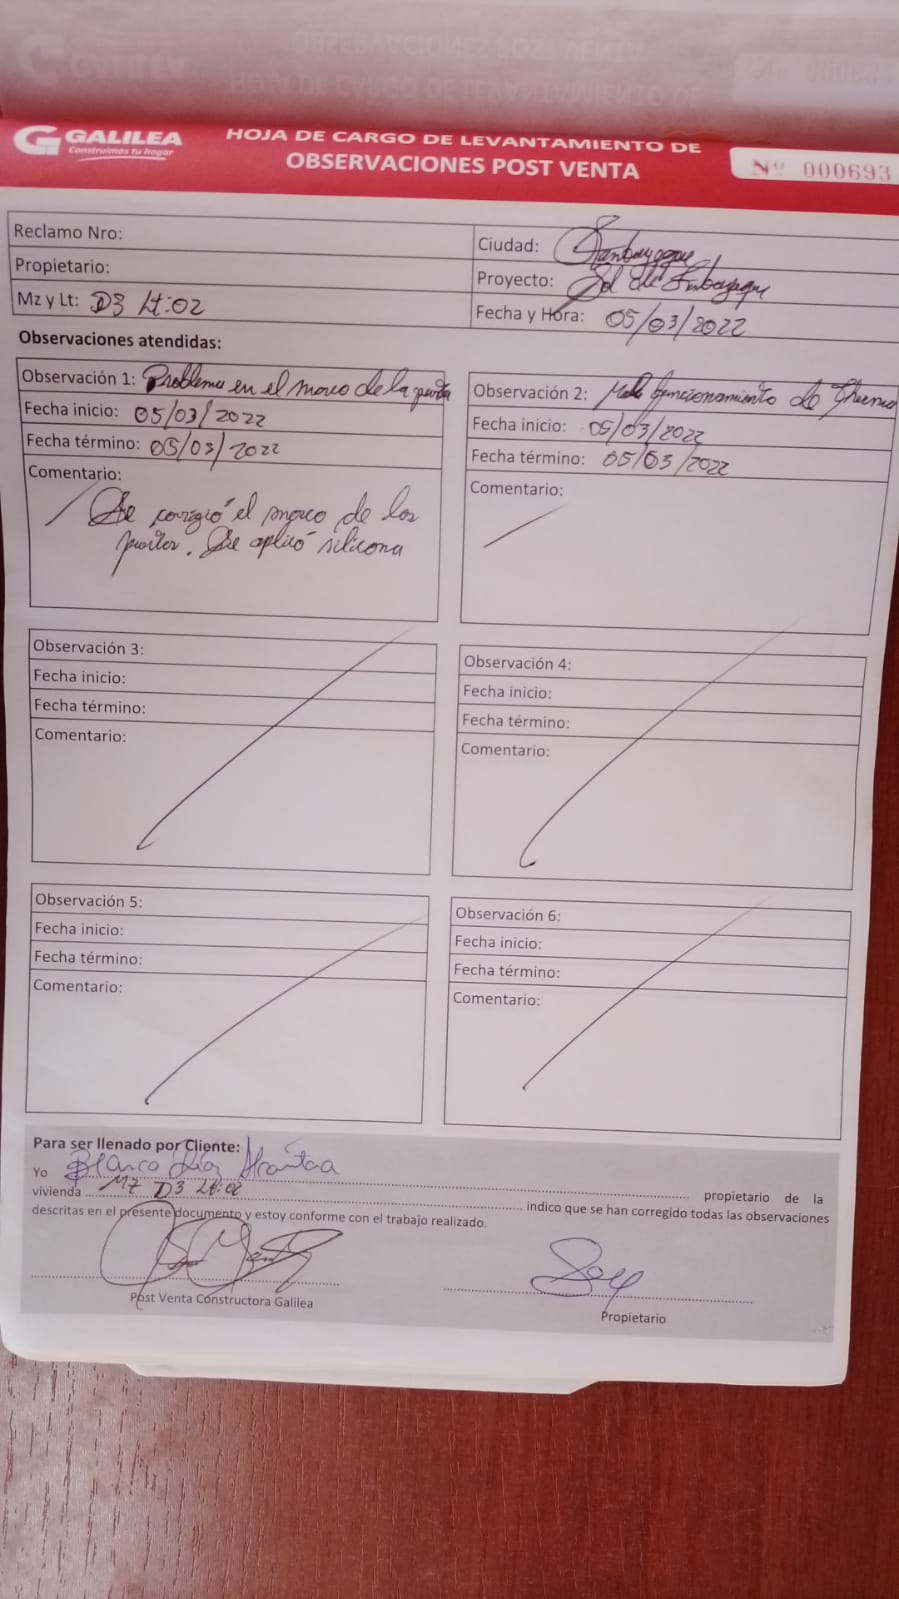 GALILEA
Construimos tu hogar
HOJA DE CARGO DE LEVANTAMIENTO DE
OBSERVACIONES POST VENTA
Nº 000693
Reclamo Nro:
Propietario:
Mz y Lt: D3 Lt:02
Ciudad: Lambayeque
Proyecto: Sol de Lambayeque
Fecha y Hora: 05/03/2022
Observaciones atendidas:
Observación 1: Problema en el marco de la puerta
Fecha inicio: 05/03/2022
Fecha término: 05/03/2022
Comentario:
Se corrigió el marco de las
puertas. Se aplicó silicona
Observación 2: Mal funcionamiento de
Fecha inicio: 05/03/2022
Fecha término: 05/03/2022
Comentario:
Observación 3:
Fecha inicio:
Fecha término:
Comentario:
Observación 4:
Fecha inicio:
Fecha término:
Comentario:
Observación 5:
Fecha inicio:
Fecha término:
Comentario:
Observación 6:
Fecha inicio:
Fecha término:
Comentario:
Para ser llenado por Cliente:
Yo Blanca Díaz Alcantaa propietario de la
vivienda Mz D3 Lt:02 indico que se han corregido todas las observaciones
descritas en el presente documento y estoy conforme con el trabajo realizado.
Post Venta Constructora Galilea
Propietario